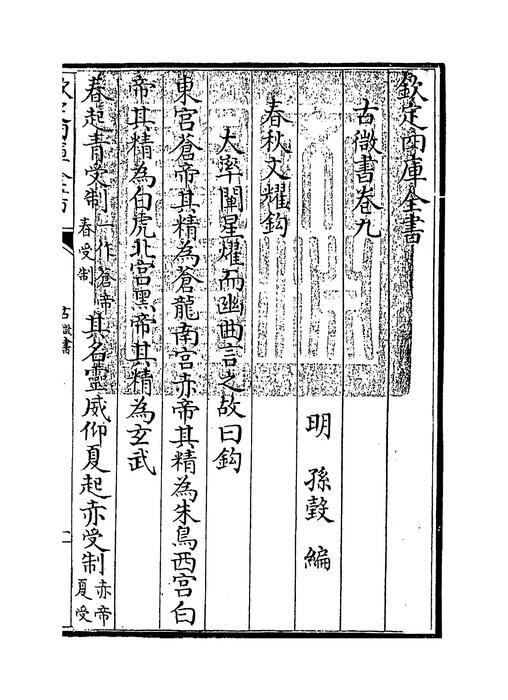 欽定四庫全書
古微書卷九
明 孫瑴 編
春秋文耀鈎
大率闡星燿而幽曲言之故曰鈎
東宮蒼帝其精為蒼龍南宮赤帝其精為朱鳥西宮白
帝其精為白虎北宮黑帝其精為玄武
春起青受制一作蒼帝春受制其名靈威仰夏起赤受制赤帝夏受
欽定四庫全書
古微書